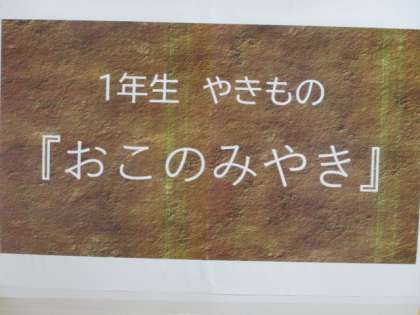 1年生 やきもの
『おこのみやき』